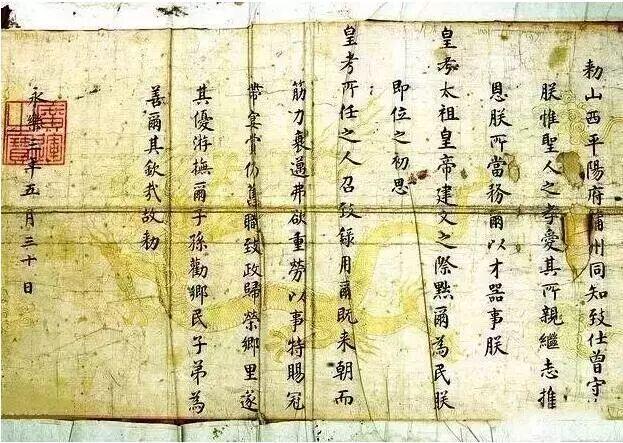 勑山西平陽府蒲州同知致仕曾守
朕惟聖人之孝愛其所親繼志推
恩朕所當務爾以才器事朕
皇考太祖皇帝建文之際黜爾為民朕
即位之初思
皇考所任之人召致錄用爾既来朝而
筋力衰邁弗欲重勞以事特賜冠
帶宴賚仍舊職致政歸榮鄉里遂
其優游撫爾子孫勸鄉民子弟為
善爾其欽哉故勑
永樂三年五月三十日